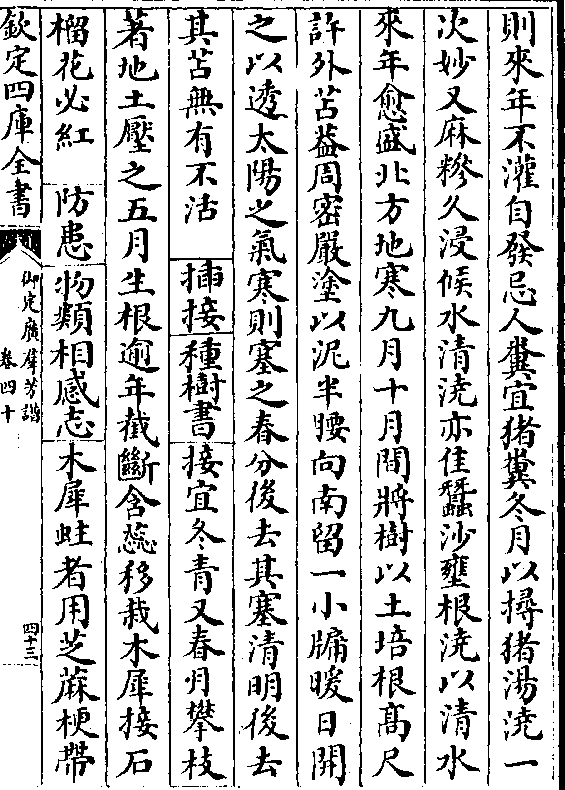 則來年不灌自發忌人糞宜猪糞冬月以撏猪湯澆一
次妙又麻糝久浸候水清澆亦佳蠶沙壅根澆以清水
來年愈盛北方地寒九月十月間將樹以土培根髙尺
許外苫葢周密嚴塗以泥半腰向南留一小牖暖日開
之以透太陽之氣寒則塞之春分後去其塞清明後去
其苫無有不活 揷接 種樹書 接宜冬青又春月攀枝
著地土壓之五月生根逾年截斷含蕊移栽木犀接石
榴花必紅 防患 物類相感志 木犀蛀者用芝蔴梗帶
欽定四庫全書
御定廣羣芳譜
卷四十
四十三